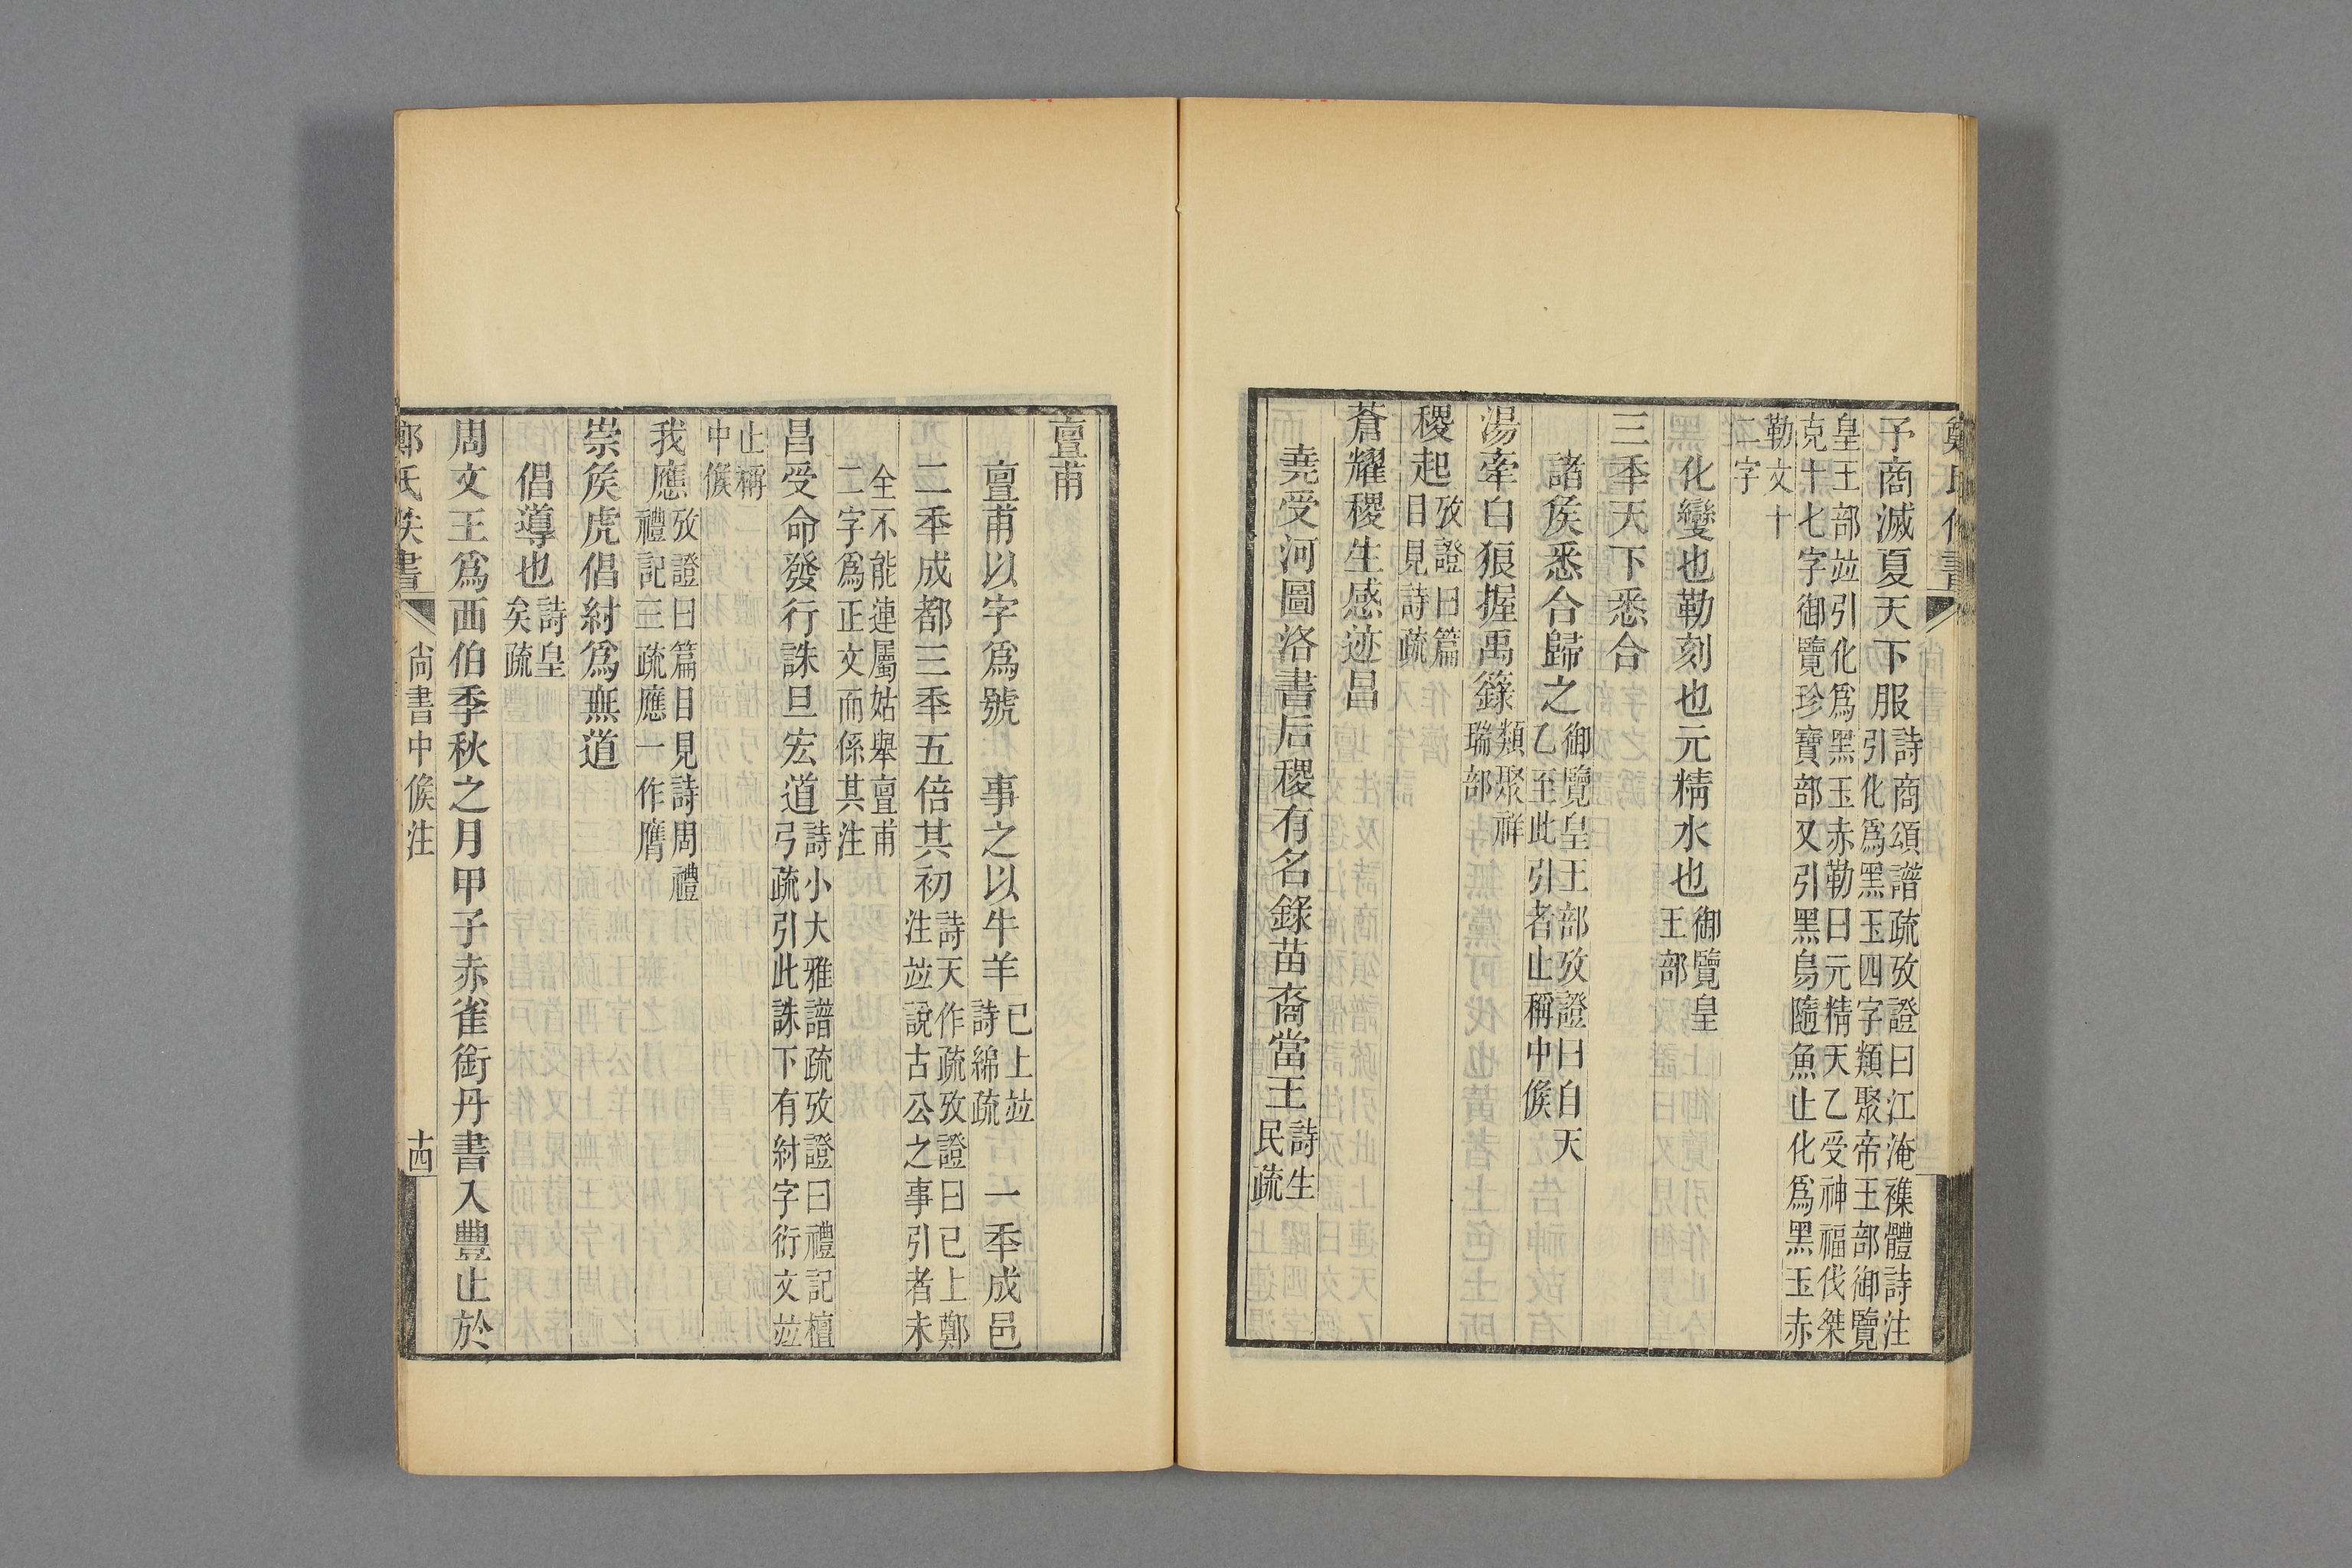 鄭氏佚書
予商滅夏天下服
詩商頌譜疏攷證曰江淹襍體詩注
引化爲黑玉四字類聚帝王部御覽
皇王部並引化爲黑玉赤勒曰元精天乙受神福伐桀
克十七字御覽珍寶部又引黑鳥隨魚止化爲黑玉赤
勒文十
二字
化變也勒刻也元精水也
御覽皇
王部
三秊天下悉合
諸矦悉合歸之
御覽皇王部攷證曰自天
乙至此引者止稱中候
湯牽白狼握禹籙
類聚祥
瑞部
稷起
攷證曰篇
目見詩疏
蒼耀稷生感迹昌
堯受河圖洛書后稷有名錄苗裔當王
詩生
民疏
亶甫
亶甫以字爲號　事之以牛羊
已上並
詩綿疏
一秊成邑
二秊成都三秊五倍其初
詩天作疏攷證曰已上鄭
注並說古公之事引者未
全不能連屬姑舉亶甫
二字爲正文而係其注
昌受命發行誅旦宏道
詩小大雅譜疏攷證曰禮記檀
弓疏引此誅下有紂字衍文並
止稱
中候
我應
攷證曰篇目見詩周禮
禮記三疏應一作膺
崇矦虎倡紂爲無道
倡導也
詩皇
矣疏
周文王爲西伯季秋之月甲子赤雀銜丹書入豐止於
鄭氏佚書
尚書中候注
十四